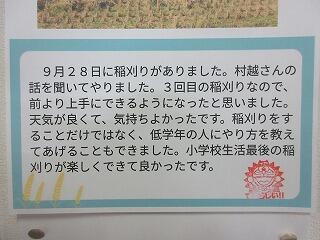 ９月２８日に稲刈りがありました。村越さんの
話を聞いてやりました。３回目の稲刈りなので、
前より上手にできるようになったと思いました。
天気が良くて、気持ちよかったです。稲刈りをす
ることだけではなく、低学年の人にやり方を教え
てあげることもできました。小学校生活最後の稲
刈りが楽しくできて良かったです。